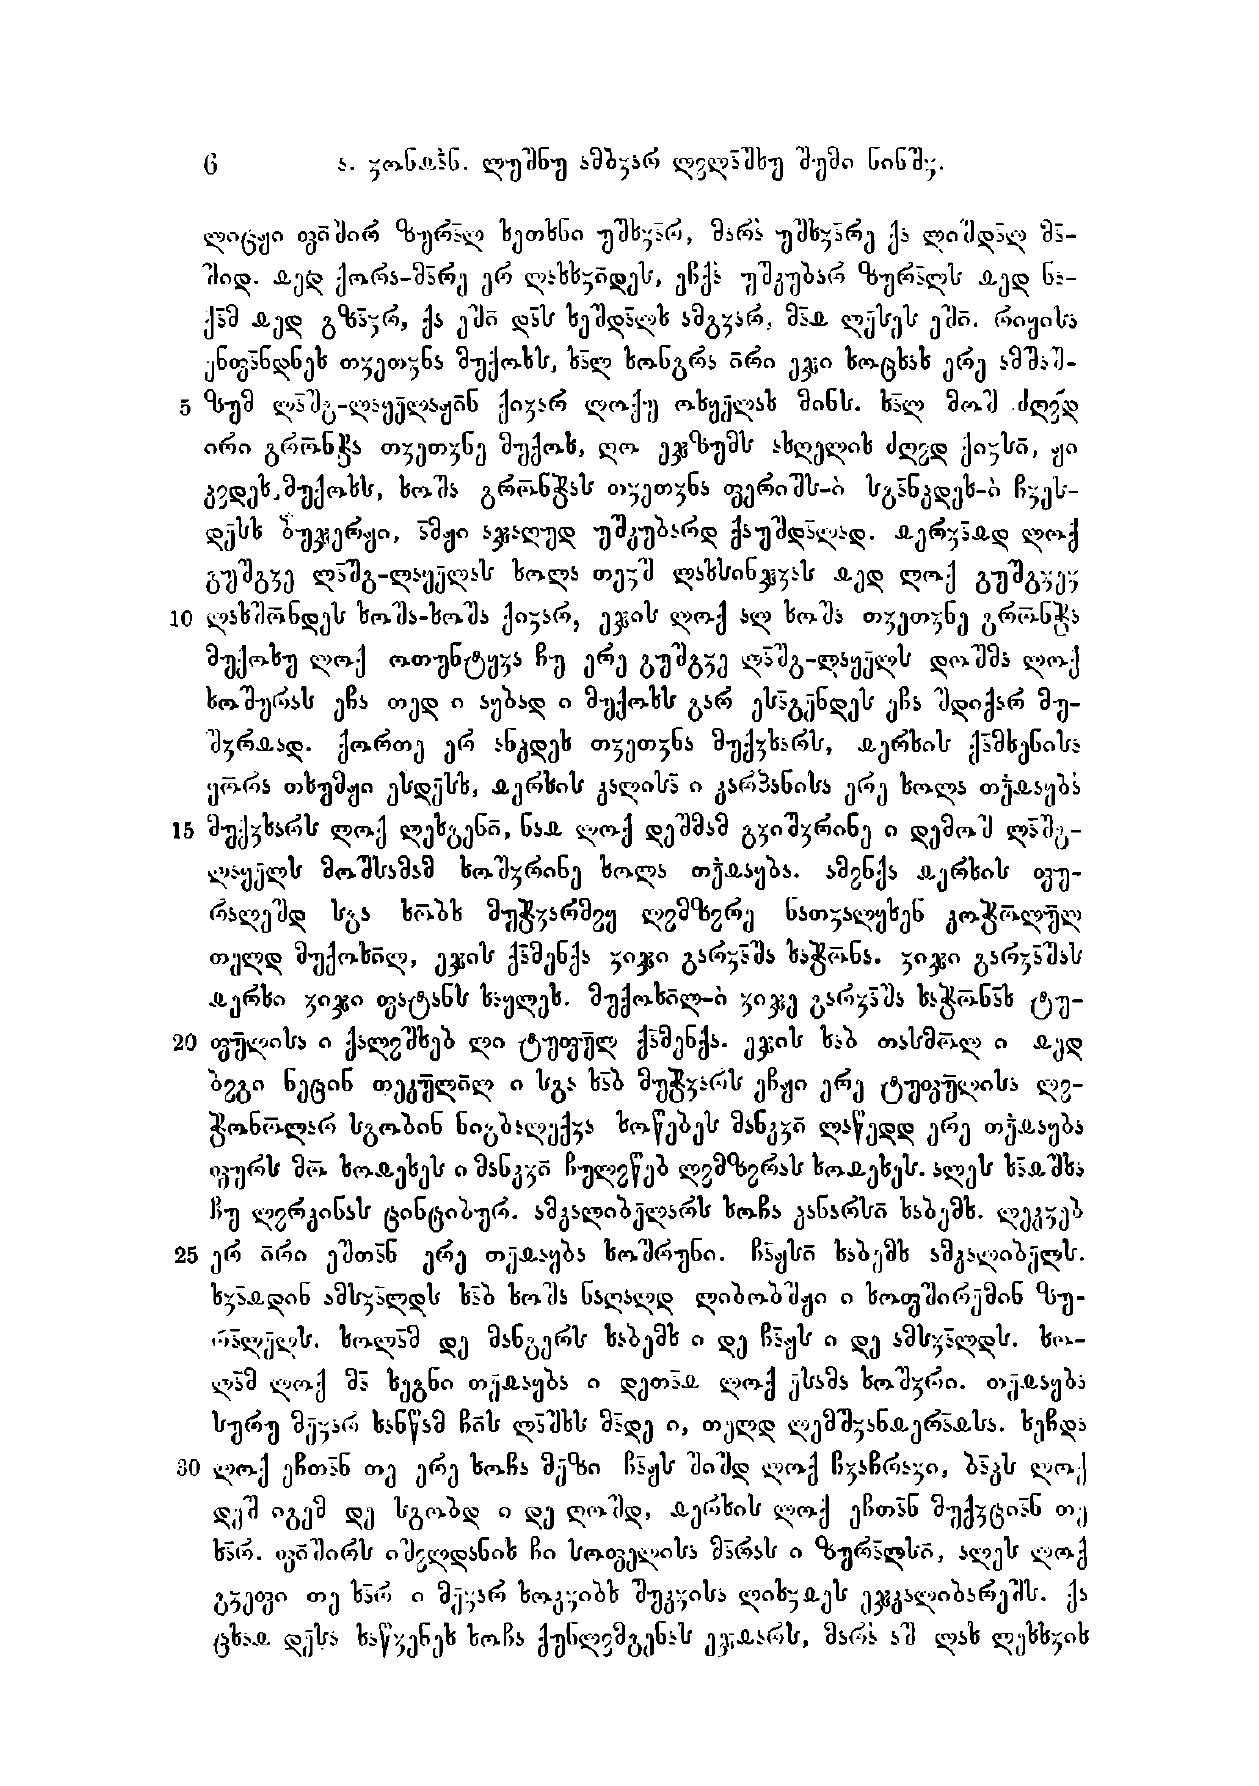 6 ა. ჳონჲა̈ნ. ლუშნუ ამბჳარ ლჷლა̄შხუ შუმი ნინშჳ.
ლიცჟი ფი̄შირ ზურა̄ლ ხეთხნი უშხჳა̄რ, მარა̀ უშხჳა̄რე ქა ლიშდა̄ლ მა̄-
შიდ. ჲედ ქორა-მა̄რე ერ ლახხჳი̄დეს, ეჩქა̀ უშკუბარ ზურა̄ლს ჲედ ნა-
ქა̄მ ჲედ გზა̄ჳრ, ქა ეში̄ და̄ს ხეშდა̄ლხ ამგჳარ, მა̄ჲ ლე̄სეს ეში̄. რიყისა
ენფა̄ნდნეხ თჳეთჳნა მუქოხს, ხა̄ლ ხონგრა ი̄რი ეჯი ხოცხახ ერე ამშაშ-
5 ზუმ ლა̄შგ-ლაყე̄ლაჟი̄ნ ქიჳარ ლოქუ ოხყე̄ლახ მინს. ხა̄ლ მოშ ძღჷდ
ირი გრო̄ნჭა თჳეთჳნე მუქოხ, ღო ეჯზუმს ახღელიხ ძღჷდ ქიჳსი̄, ჟი
კჷდეხ მუქოხს, ხოშა გრო̄ნჭას თჳეთჳნა ფერიშს-ი̀ სგა̄ნკდეხ-ი̀ ჩჳეს-
დე̄სხ ბუჯერჟი, ა̄მჟი აჯაღუდ უშკუბარდ ქაუშდა̄ლად. ჲერჳა̄ჲდ ლოქ
გუშგჳე ლა̄შგ-ლაყე̄ლას ხოლა თეჳშ ლახსინჯჳას ჲედ ლოქ გუშგჳეჳ
10 ლახშო̄ნდეს ხოშა-ხოშა ქიჳარ, ეჯის ლოქ ალ ხოშა თჳეთჳნე გრო̄ნჭა
მუქოხუ ლოქ ოთუნტყჳა ჩუ ერე გუშგჳე ლა̄შგ-ლაყე̄ლს დოშმა ლოქ
ხოშურას ეჩა თედ ი აყბად ი მუქოხს გარ ესა̄გე̄ნდეს ეჩა შდიქარ მუ-
შჳრჲად. ქორთე ერ ანკდეხ თჳეთჳნა მუქჳხარს, ჲერხის ქა̄მხენისა
ყო̄რა თხუმჟი ესდე̄სხ, ჲერხის კალისა̄ ი კარპანისა ერე ხოლა თჷ̄ჲაყბა̀
15 მუქჳხარს ლოქ ლეხგენი̄, ნაჲ ლოქ დეშმამ გჳიშჳრინე ი დემოშ ლა̄შგ-
ლაყე̄ლს მოშსამამ ხოშჳრინე ხოლა თჷ̄ჲაყბა. ამჷნქა ჲერხის ფუ-
რალეშდ სგა ხო̄ბხ მუჭჳარმჷყ ლჷმზჷრე ნათჳალყხენ კოჭო̄ლულ
თელდ მუქოხი̄ლ, ეჯის ქა̄მენქა ჳიჯი გარჳა̄შა ხაჭო̄ნა. ჳიჯი გარჳა̄შას
ჲერხი ჳიჯი ფატანს ხაყლეხ. მუქოხი̄ლ-ი̀ ჳიჯე გარჳა̄შა ხაჭო̄ნახ ტუ-
20 ფუ̄ლისა ი ქალჷშხებ ლი ტუფუ̄ლ ქა̄მენქა. ეჯის ხაბ თასმო̄ლ ი ჲედ
ბჷგი ნეცინ თეკუ̄ლი̄ლ ი სგა ხა̄ბ მუჭჳარს ეჩჟი ერე ტუფუ̄ლისა ლჷ-
ჭონო̄ლარ სგობინ ნიგბალექჳა ხოწებეს მანკჳი̄ ლაწედდ ერე თჷ̄ჲაყბა
იკურს მო̄ ხოჲეხეს ი მანკჳი̄ ჩულჷწებ ლჷმზჷრას ხოჲეხეს. ალეს ხა̄ჲშხა
ჩუ ლჷრკინას ცინციბურ. ამკალიბე̄ლარს ხოჩა კანარსი̄ ხაბემხ. ლეკჳებ
25 ერ ი̄რი ეშთა̄ნ ერე თე̄ჲაყბა ხოშრუნი. ჩა̄ჟსი̄ ხაბემხ ამკალიბე̄ლს.
ხჳა̄ჲდინ ამსჳა̄ლდს ხა̄ბ ხოშა ნაღალდ ლიბობშჟი ი ხოფშირე̄მინ ზუ-
რა̄ლე̄ლს. ხოლა̄მ დე მანგერს ხაბემხ ი დე ჩა̄ჟს ი დე ამსჳა̄ლდს. ხო-
ლა̄მ ლოქ მა̄ ხეგნი თე̄ჲაყბა ი დეთა̄ჲ ლოქ ე̄სამა ხოშჳრი. თე̄ჲაყბა
სურუ მე̄ჳარ ხანწამ ჩი̄ს ლა̄შხს მა̄დე ი, თელდ ლემშჳანჲერა̄ჲსა. ხეჩდა
30 ლოქ ეჩთა̄ნ თე ერე ხოჩა მე̄ზი ჩა̄ჟს შიშდ ლოქ ჩჳაჩრაჳი, ბა̄კს ლოქ
დეშ იგემ დე სგობდ ი დე ღოშდ, ჲერხის ლოქ ეჩთა̄ნ მუქჳცია̄ნ თე
ხა̄რ. ფი̄შირს იშჷლდანიხ ჩი სოფელისა მა̄რას ი ზურა̄ლსი̄, ალეს ლოქ
გჳეფი თე ხა̄რ ი მე̄ჳარ ხოკჳიბხ შუკჳისა ლიხჳჲეს ეჯკალიბარეშს. ქა
ცხაჲ დე̄სა ხაწჳენეხ ხოჩა ქუნლჷმგენას ეჯჲარს, მარა̀ აშ ლახ ლეხხჳიხ